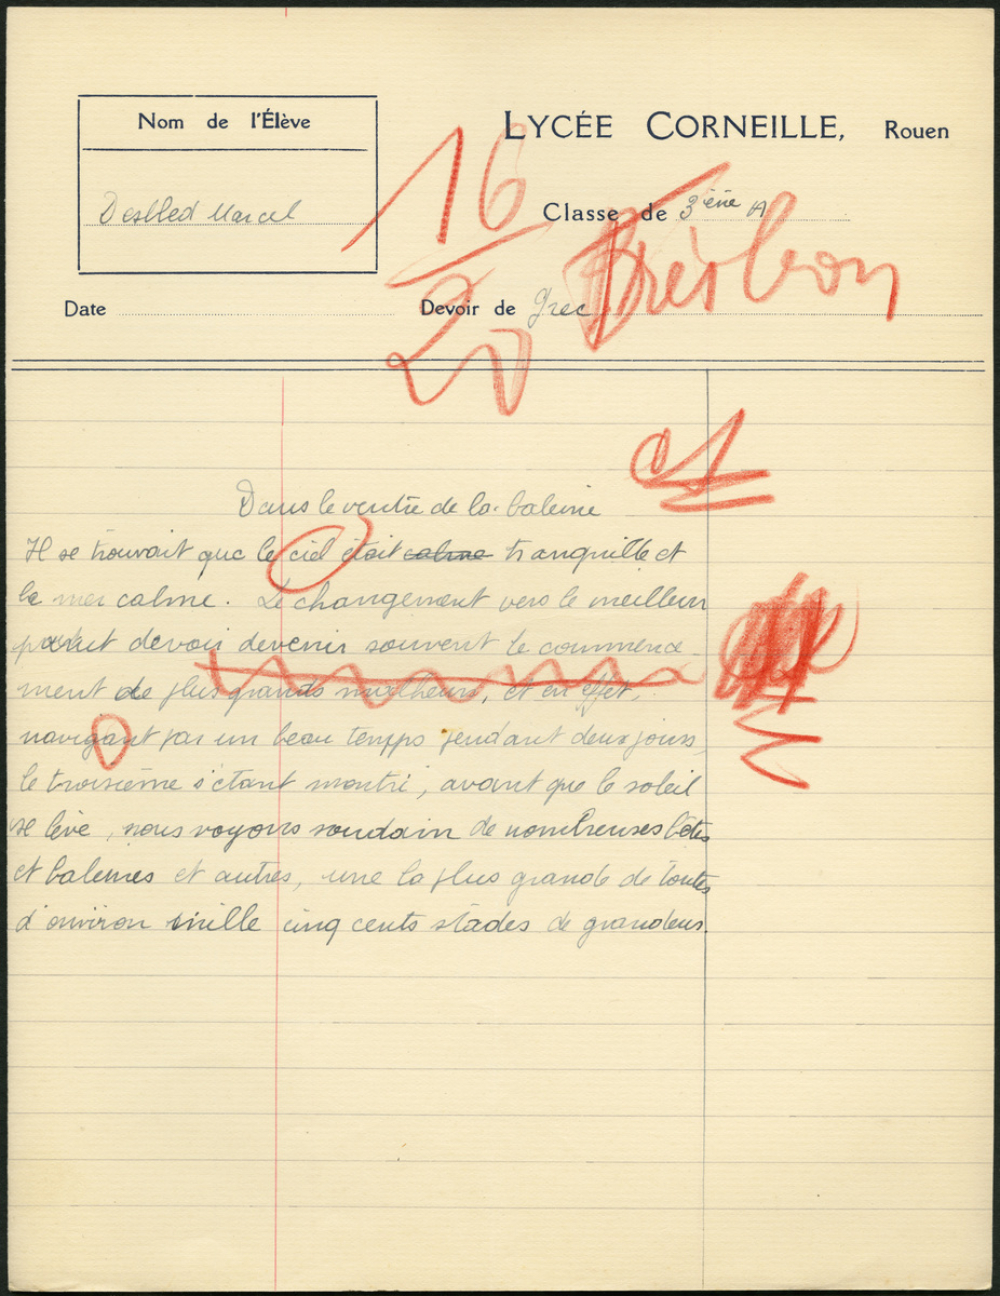 Nom de l'Élève
LYCÉE CORNEILLE, Rouen
Desbled Marcel
16
20
Classe de 3ème A
Très bon
Date
Devoir de Grec
Dans le ventre de la baleine
Il se trouvait que le ciel était calme tranquille et
la mer calme. Le changement vers le meilleur
parait devoir devenir souvent le commence-
ment de plus grands malheurs, et en effet,
navigant par un beau temps pendant deux jours,
le troisième s'étant montré, avant que le soleil
se lève, nous voyons soudain de nombreuses bêtes
et baleines et autres, une la plus grande de toutes
d'environ mille cinq cents stades de grandeur.